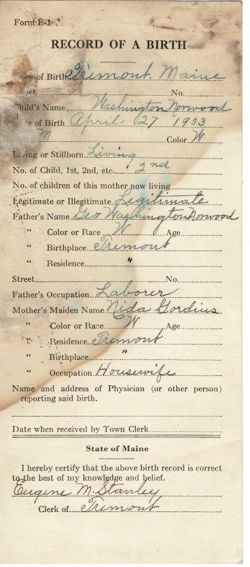 Form E-1
RECORD OF A BIRTH
e of Birth Tremont, Maine
et No.
Child's Name Washington Norwood
te of Birth April 27 1903
M Color W
Living or Stillborn Living
No. of Child, 1st, 2nd, etc. 2nd
No. of children of this mother now living
Legitimate or Illegitimate Legitimate
Father's Name Geo Washington Norwood
" Color or Race W Age
" Birthplace Tremont
" Residence "
Street No.
Father's Occupation Laborer
Mother's Maiden Name
" Color or Race W Age
" Residence Tremont
" Birthplace "
" Occupation Housewife
Name and address of Physician (or other person)
reporting said birth.
Date when received by Town Clerk
State of Maine
I hereby certify that the above birth record is correct
to the best of my knowledge and belief.
Eugene M. Stanley
Clerk of Tremont